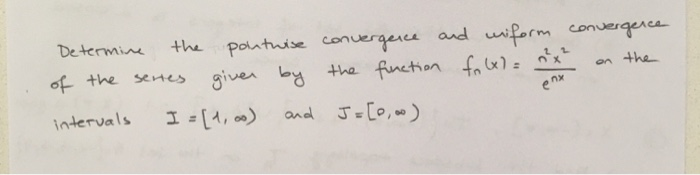 Determine the pointwise convergence and uniform convergence
of the series given by the function fₙ(x) = n²x²/e^(nx) on the
intervals I = [1, ∞) and J = [0, ∞)